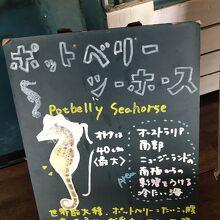 ポットベリー
シーホース
Potbelly Seahorse
オトナは
40cm
(最大)
Area
オーストラリア
南部
ニュージーランドの
南極からの
影響をうける
冷たい海
世界最大種.ポットベリー=たいこ腹